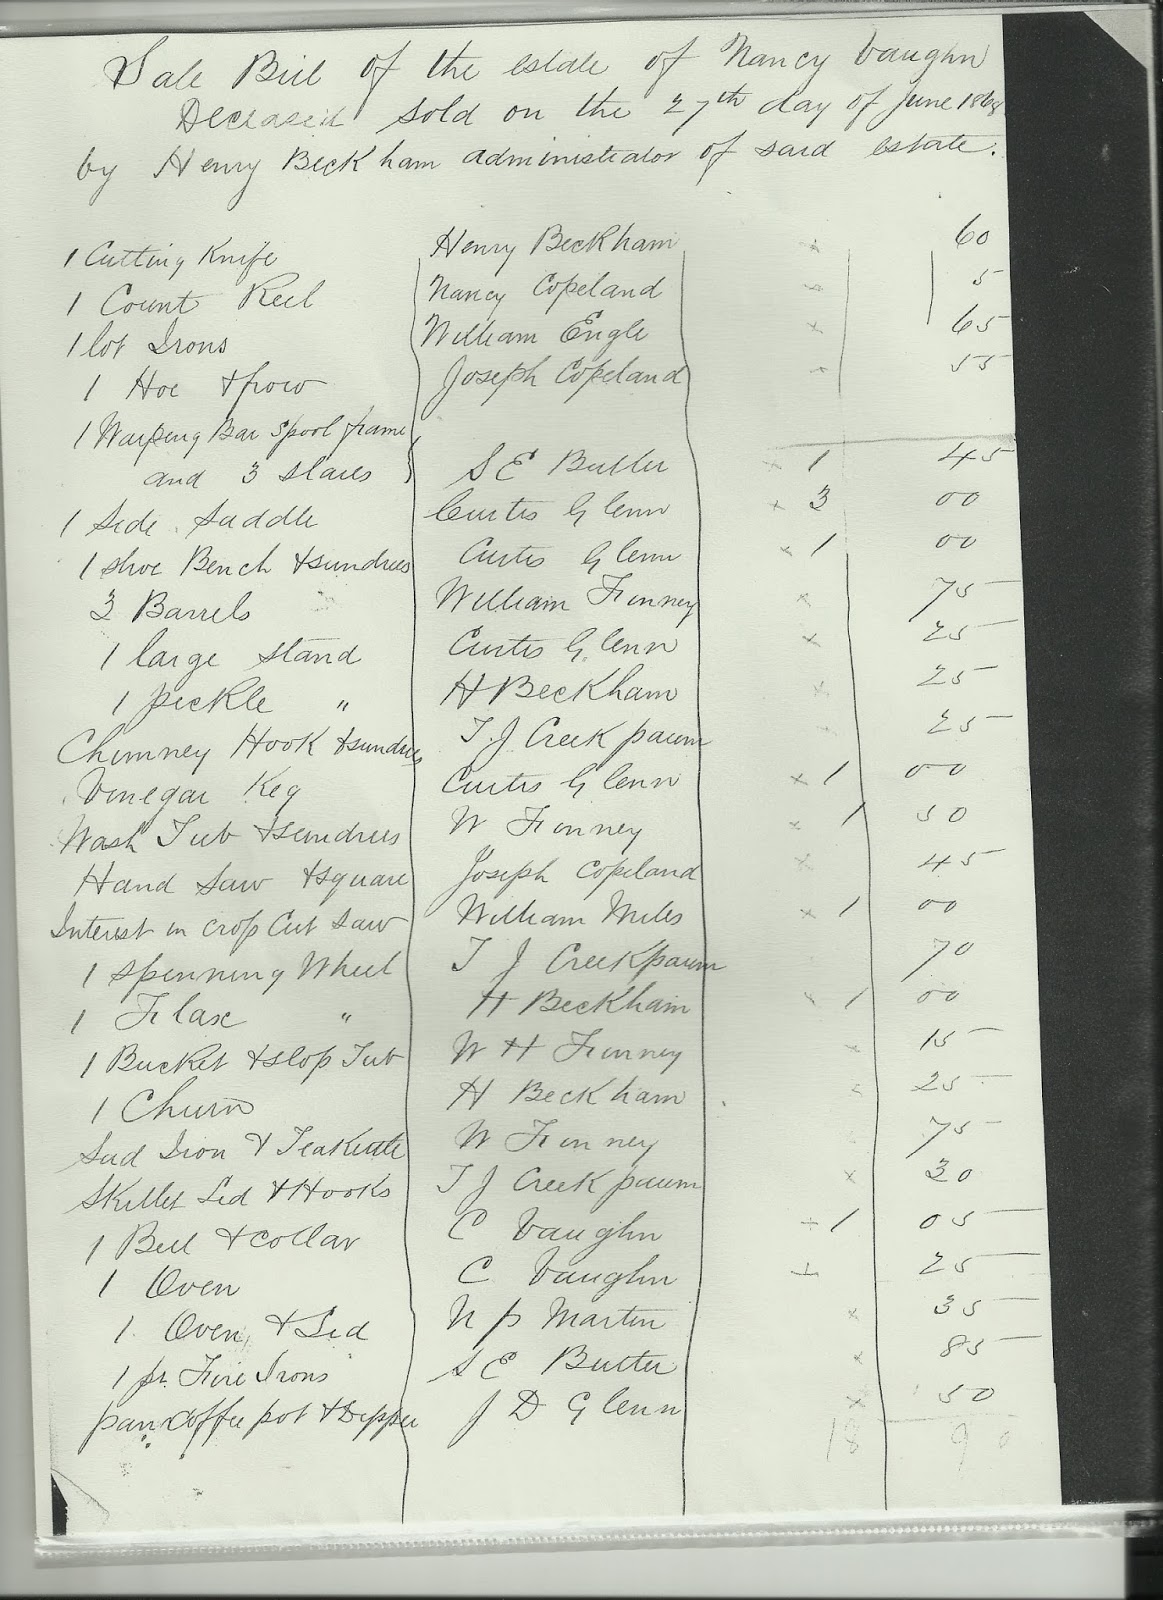 Sale Bill of the estate of Nancy Vaughn
Deceased sold on the 27th day of June 1868
by Henry Beckham administrator of said estate.
1 Cutting Knife Henry Beckham x 60
1 Count Reel Nancy Copeland x 5
1 lot Irons William Engle x 65
1 Hoe & frow Joseph Copeland x 55
1 Warping Bar Spool frame
and 3 slares S E Butler x 1 45
1 Side Saddle Curtis Glenn x 3 00
1 shoe Bench & sundries Curtis Glenn x 1 00
3 Barrels William Finney x 75
1 large stand Curtis Glenn x 25
1 pickle " H Beckham x 25
Chimney Hook & sundries T. J. Creekpaum 25
Vinegar Keg Curtis Glenn x 1 00
Wash Tub & sundries W Finney x 1 50
Hand Saw & square Joseph Copeland x 45
Interest in crop Cut Saw William Miles x 1 00
1 Spinning Wheel T J Creekpaum 70
1 Flax " H Beckham x 1 00
1 Bucket & slop Tub W H Finney x 15
1 Churn H Beckham x 25
Sad Iron & Teakettle W Finney 75
Skillet Led & Hooks T J Creekpaum x 30
1 Bell & collar C Vaughn + 1 05
1 Oven C Vaughn + 25
1 Oven & Led N P Martin x 35
1 pr. Fire Irons S E Butler x 85
pan coffee pot & Dipper J D Glenn x 50
18 90